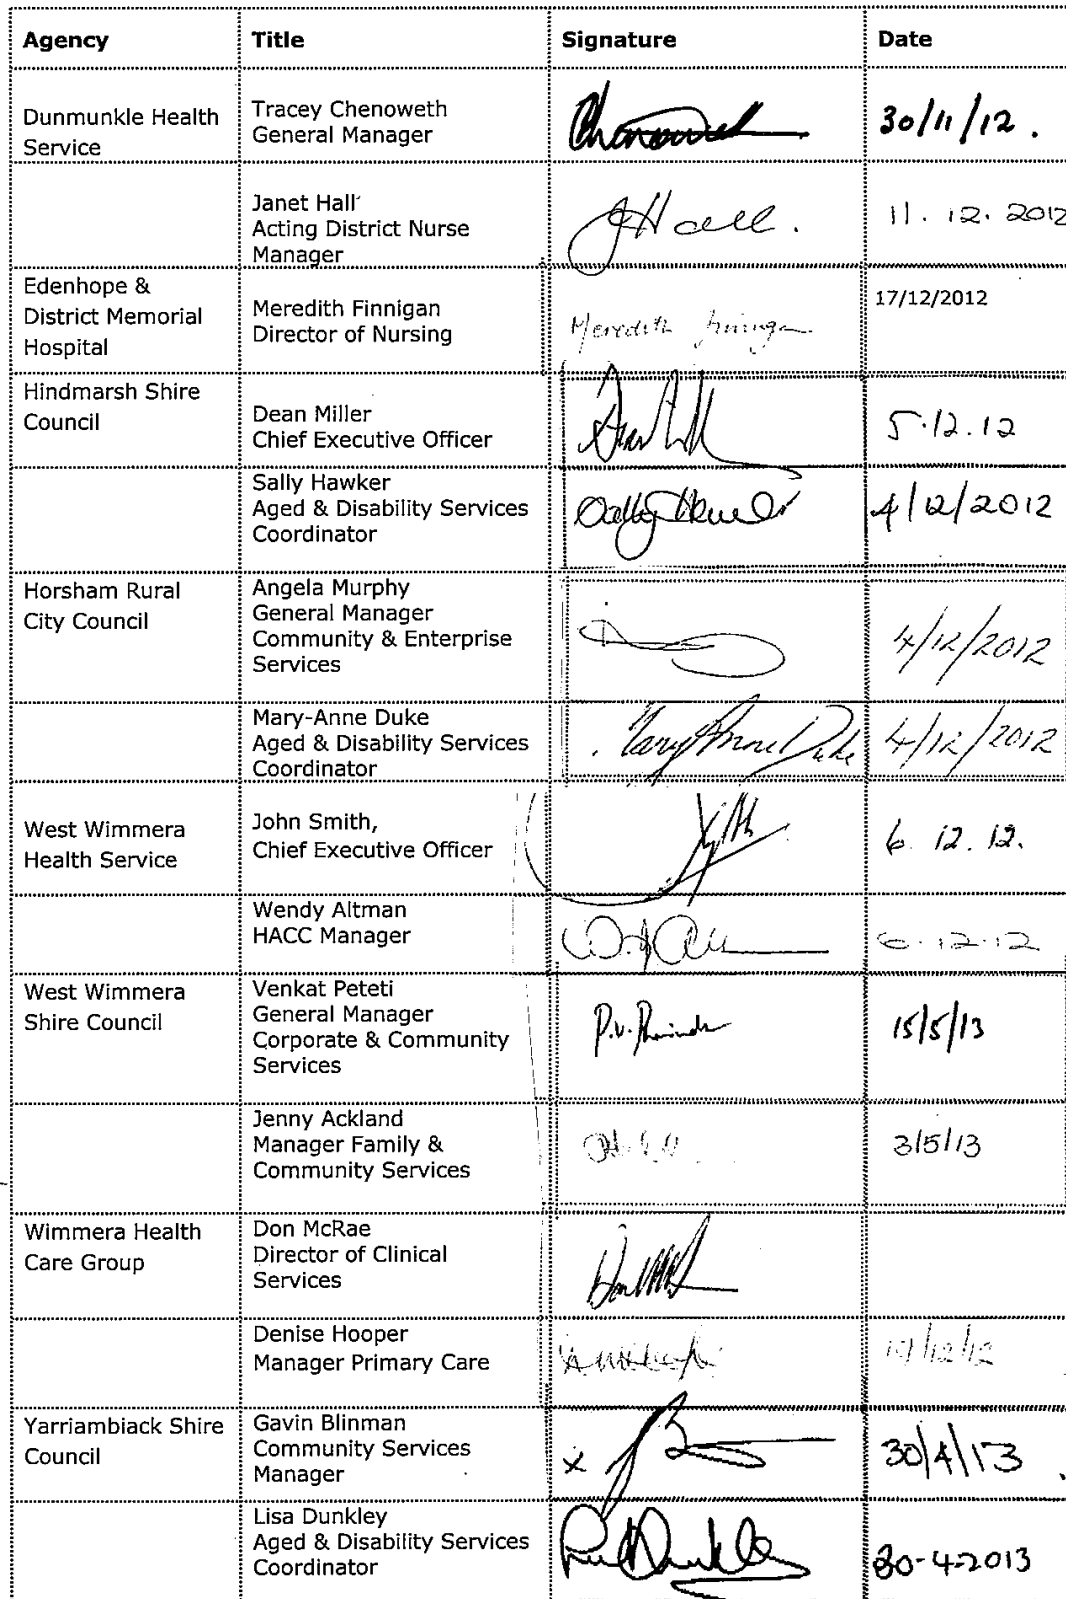 Agency Title Signature Date
Dunmunkle Health
Service
Tracey Chenoweth
General Manager
Chenoweth
30/11/12.
Janet Hall
Acting District Nurse
Manager
JHall.
11.12.2012
Edenhope &
District Memorial
Hospital
Meredith Finnigan
Director of Nursing
Meredith
17/12/2012
Hindmarsh Shire
Council
Dean Miller
Chief Executive Officer
5.12.12
Sally Hawker
Aged & Disability Services
Coordinator
Sally Hawker
4/12/2012
Horsham Rural
City Council
Angela Murphy
General Manager
Community & Enterprise
Services
4/12/2012
Mary-Anne Duke
Aged & Disability Services
Coordinator
Mary Anne Duke
4/12/2012
West Wimmera
Health Service
John Smith,
Chief Executive Officer
6.12.12.
Wendy Altman
HACC Manager
6.12.12
West Wimmera
Shire Council
Venkat Peteti
General Manager
Corporate & Community
Services
P.V.
15/5/13
Jenny Ackland
Manager Family &
Community Services
3/5/13
Wimmera Health
Care Group
Don McRae
Director of Clinical
Services
Denise Hooper
Manager Primary Care
Yarriambiack Shire
Council
Gavin Blinman
Community Services
Manager
x
30/4/13
Lisa Dunkley
Aged & Disability Services
Coordinator
30-4-2013